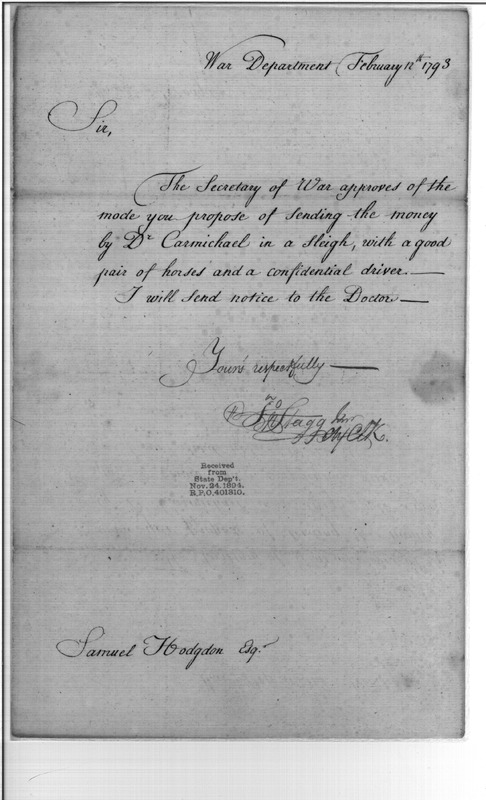 War Department February 12th 1793
Sir,
The Secretary of War approves of the
mode you propose of sending the money
by Dr Carmichael in a sleigh, with a good
pair of horses and a confidential driver.—
I will send notice to the Doctor—
Yours respectfully—
Jno Stagg Junr
Chf Clk.
Received
from
State Dep't.
Nov. 24. 1894.
R.P.O. 401310.
Samuel Hodgdon Esqr